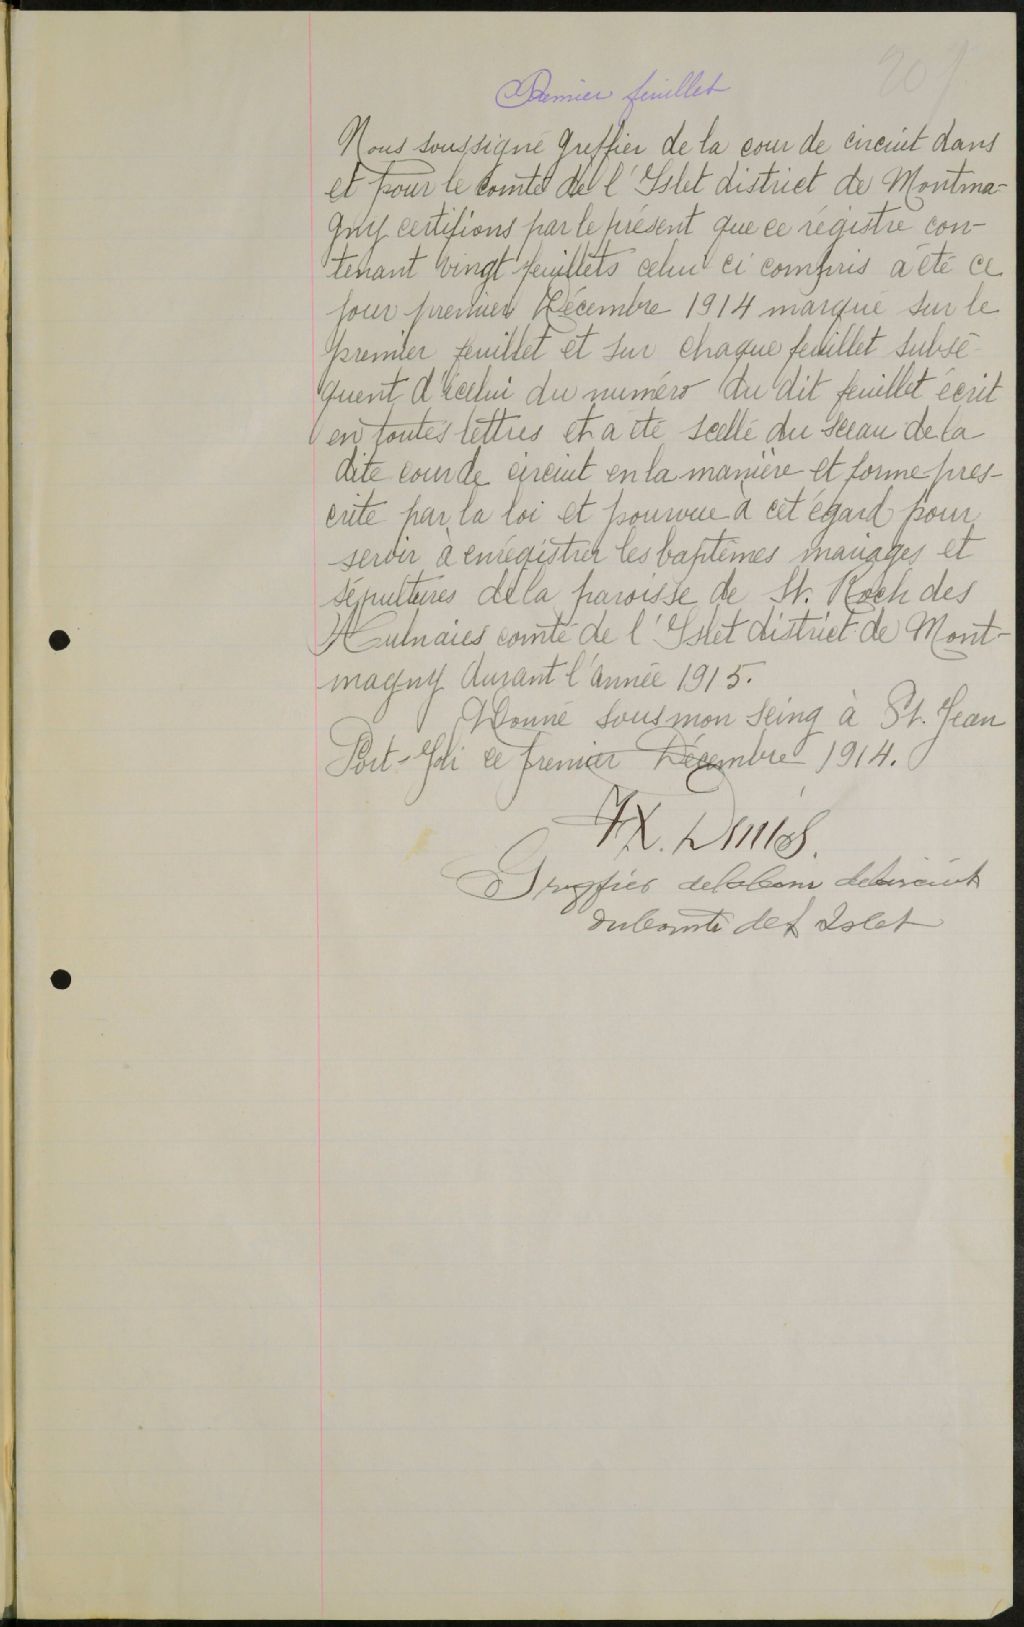 Premier feuillet
Nous soussigné greffier de la cour de circuit dans
et pour le comté de l'Islet district de Montma-
gny certifions par le présent que ce régistre con-
tenant vingt feuillets celui ci compris a été ce
jour premier Décembre 1914 marqué sur le
premier feuillet et sur chaque feuillet subsé-
quent d'icelui du numéro du dit feuillet écrit
en toutes lettres et a été scellé du sceau de la
dite cour de circuit en la manière et forme pres-
crite par la loi et pourvue à cet égard pour
servir à enrégistrer les baptêmes mariages et
sépultures de la paroisse de St. Roch des
Aulnaies comté de l'Islet district de Mont-
magny durant l'année 1915.
Donné sous mon seing à St. Jean
Port-Joli ce premier Décembre 1914.
FX.
Greffier de la Cour de Circuit
du Comté de l'Islet